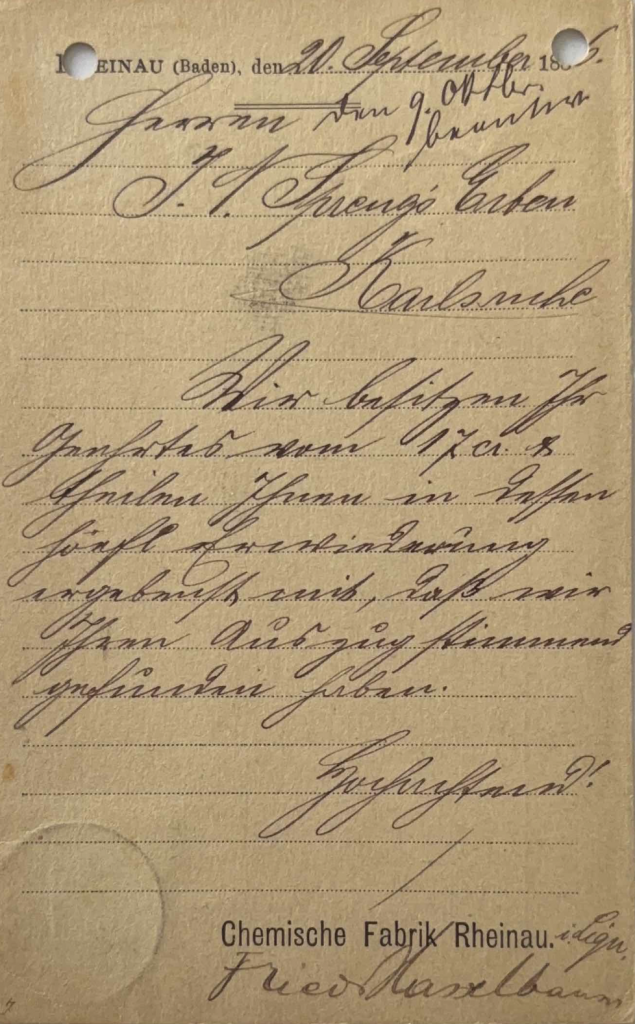 RHEINAU (Baden), den 20. September 188 6.
Herren den 9. Oktbr.
beantw
J. N. Spreng's Erben
Karlsruhe
Wir besitzen Ihr
Geehrtes vom 17 cr. &
theilen Ihnen in dessen
höfl Erwiederung
ergebenst mit, daß wir
Ihren Auszug stimmend
gefunden haben.
Hochachtend!
Chemische Fabrik Rheinau. i. Liqu.
Fried Haselbaum